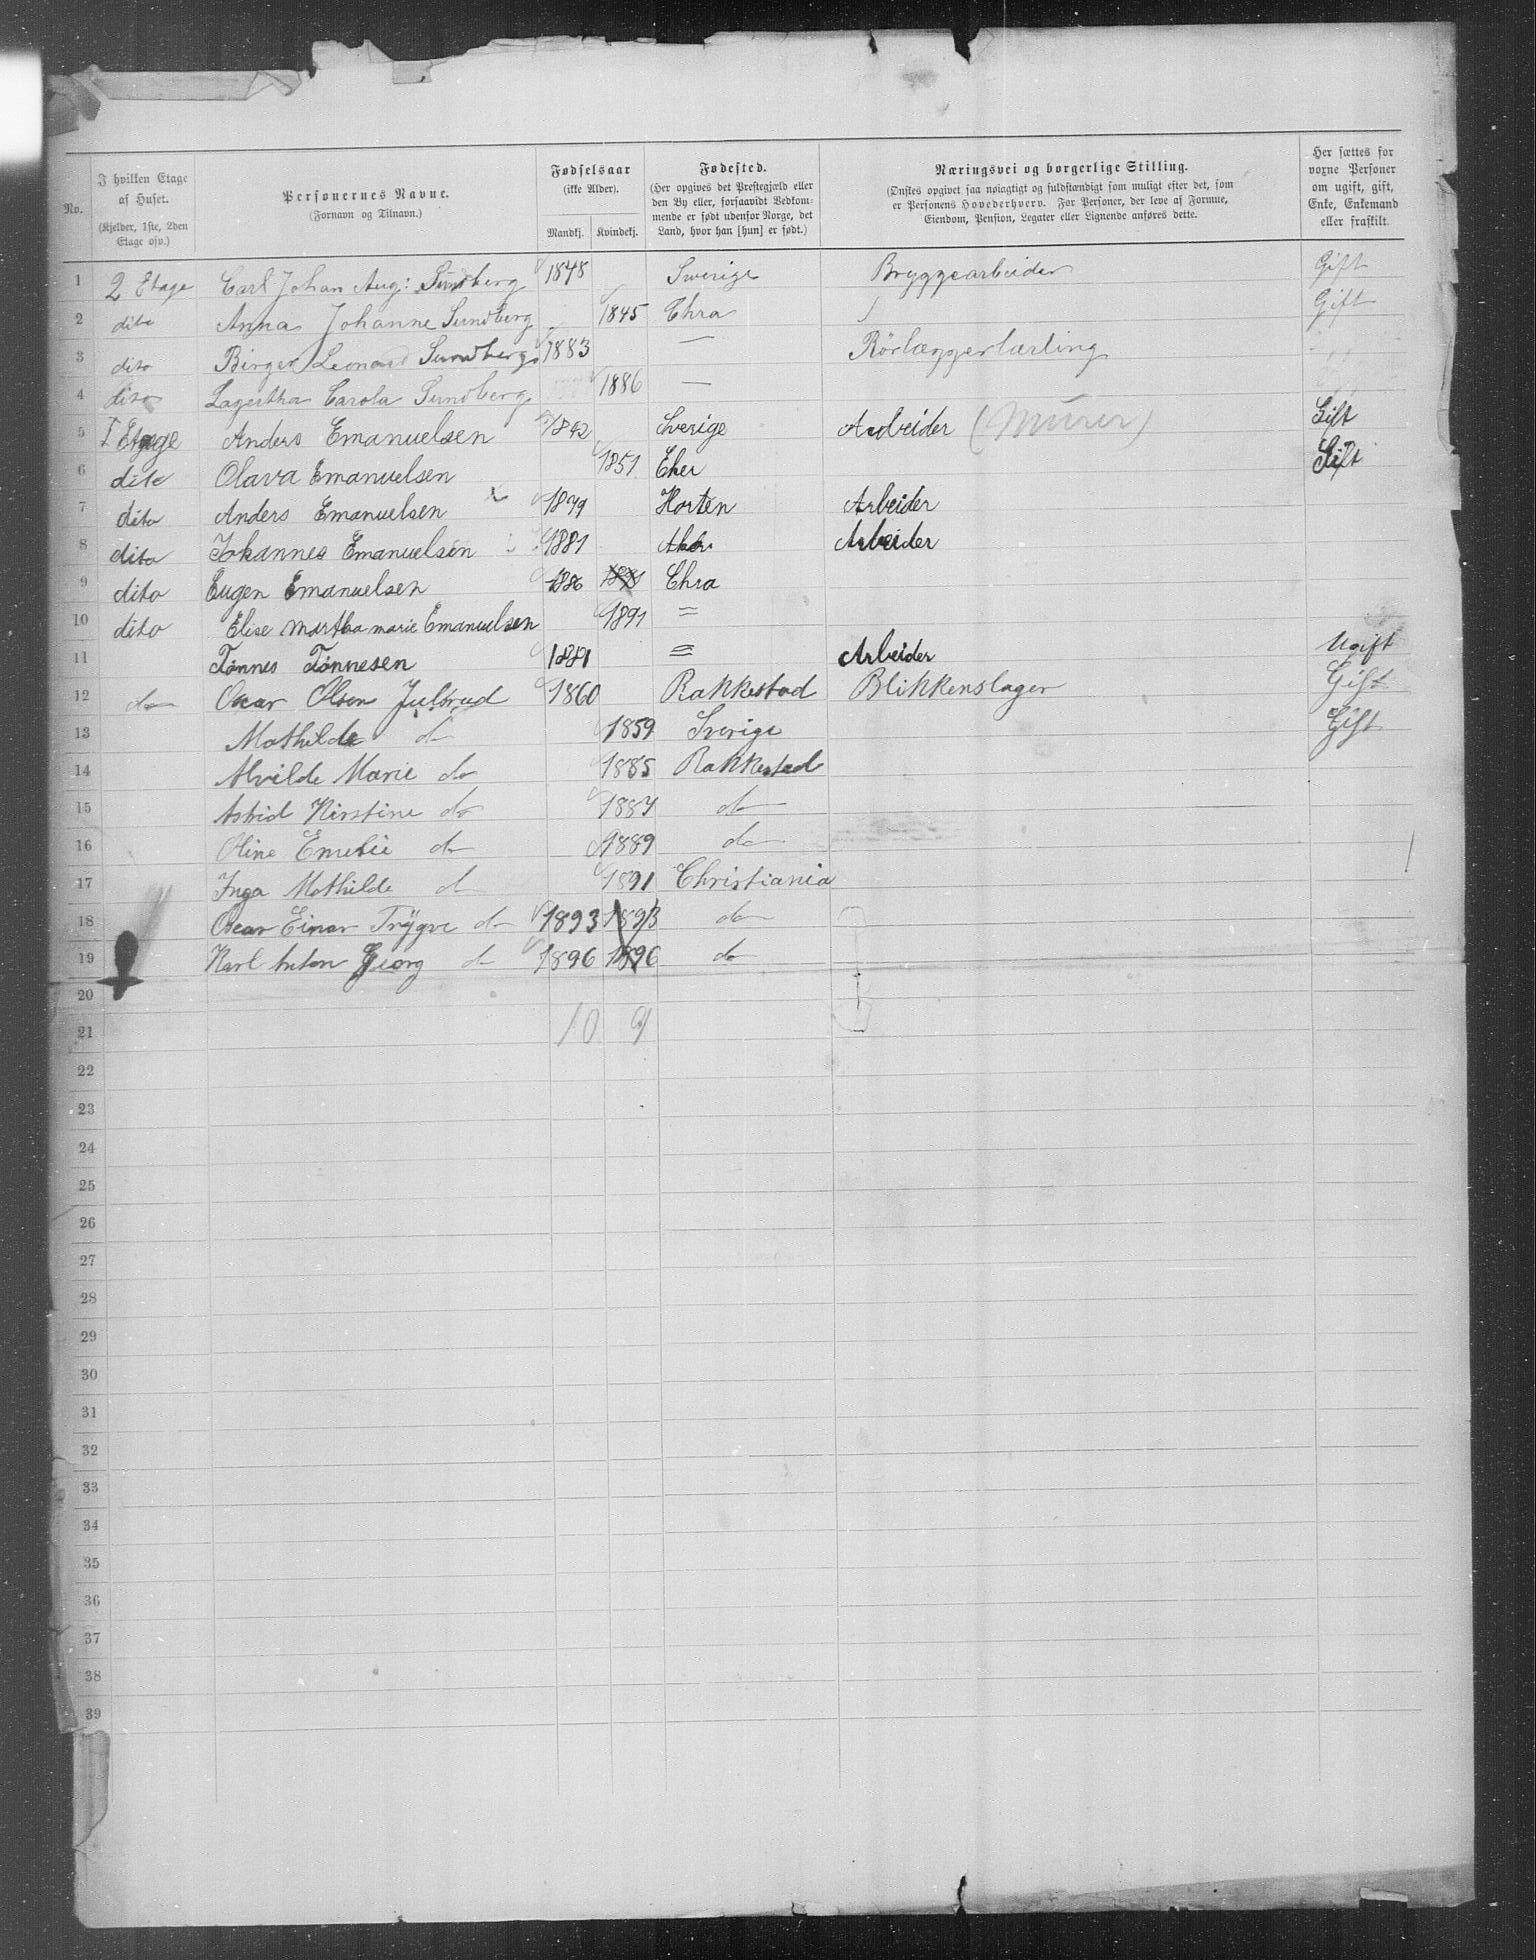 No.
I hvilken Etage af Huset.
(Kjelder, 1ste, 2den Etage osv.)
Personernes Navne.
(Fornavn og Tilnavn.)
Fødselsaar
(ikke Alder).
Mandkj. Kvindekj.
Fødested.
(Her opgives det Prestegjæld eller
den By eller, forsaavidt Vedkom-
mende er født udenfor Norge, det
Land, hvor han [hun] er født.)
Næringsvei og borgerlige Stilling.
(Ønskes opgivet saa nøiagtigt og fuldstændigt som muligt efter det, som
er Personens Hovederhverv. For Personer, der leve af Formue,
Eiendom, Pension, Legater eller Lignende anføres dette.
Her sættes for
voxne Personer
om ugift, gift,
Enke, Enkemand
eller fraskilt.
1 2 Etage Carl Johan Aug: Sundberg 1848 Sverige Bryggearbeider Gift
2 dito Anna Johanne Sundberg 1845 Chra Gift
3 dito Birger Leonard Sundberg 1883 — Rörlæggerlærling
4 dito Lagertha Carola Sundberg 1886 —
5 I Etage Anders Emanuelsen 1842 Sverige Arbeider (Murer) Gift
6 dito Olava Emanuelsen 1851 Eker Gift
7 dito Anders Emanuelsen 1879 Horten Arbeider
8 dito Johannes Emanuelsen 1881 Arbeider
9 dito Eugen Emanuelsen 1886 Chra
10 dito Elise Martha marie Emanuelsen 1891 =
11 Tønnes Tønnesen 1881 = Arbeider Ugift
12 do Oscar Olsen Julsrud 1860 Rakkestad Blikkenslager Gift
13 Mathilde do 1859 Sverige Gift
14 Alvilde Marie do 1885 Rakkestad
15 Astrid Kirstine do 1887 do
16 Oline Emelie do 1889 do
17 Inga Mathilde do 1891 Christiania
18 Oscar Einar Trygve do 1893 1893 do
19 Karl Anton Georg do 1896 1896 do
20
21 10 9
22
23
24
25
26
27
28
29
30
31
32
33
34
35
36
37
38
39